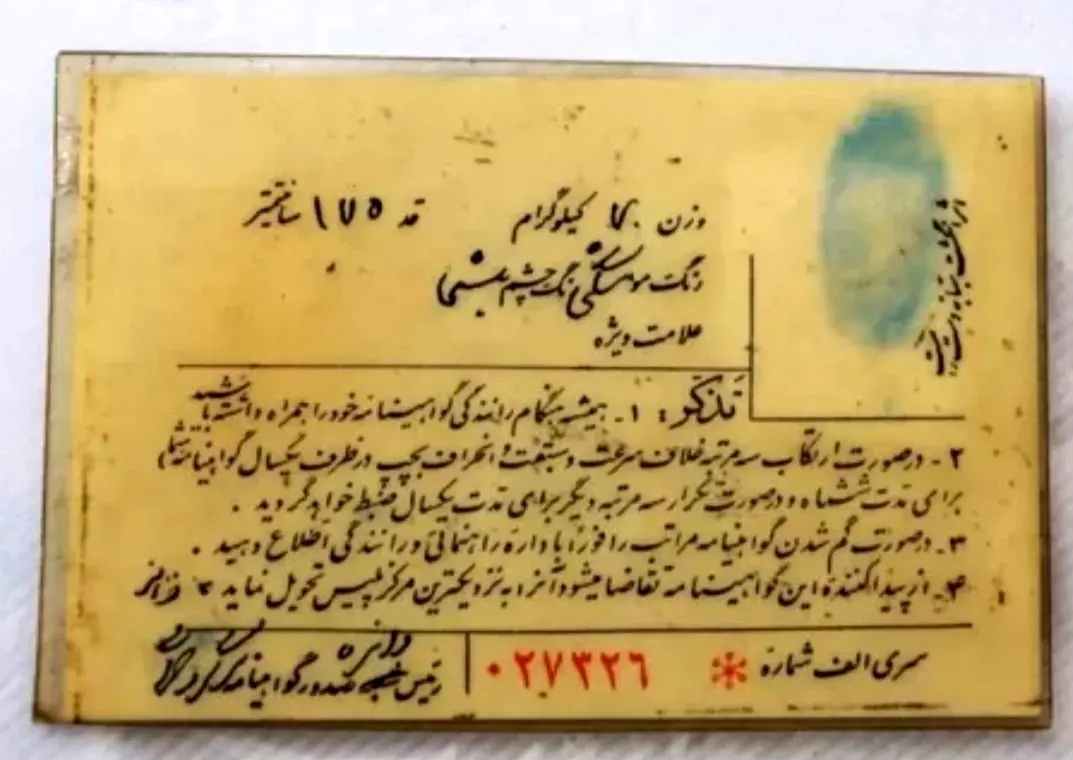 وزن ۷۰ کیلوگرام قد ۱۷۵ سانتیمتر
رنگ مو مشکی رنگ چشم میشی
علامت ویژه
اثر انگشت سبابه دست راست
تذکر : ۱ـ همیشه هنگام رانندگی گواهینامه خود را همراه داشته باشید
۲ـ درصورت ارتکاب سه مرتبه خلاف سرعت و سبقت و انحراف بچپ در ظرف یکسال گواهینامه شما
برای مدت ششماه و درصورت تکرار سه مرتبه دیگر برای مدت یکسال ضبط خواهد گردید .
۳ـ درصورت گم شدن گواهینامه مراتب را فوراً باداره راهنمائی و رانندگی اطلاع دهید .
۴ـ از پیدا کننده این گواهینامه تقاضا میشود آنرا به نزدیکترین مرکز پلیس تحویل نماید
سری الف شماره * ۰۲۷۳۲۶
رئیس دائره صدور گواهینامه